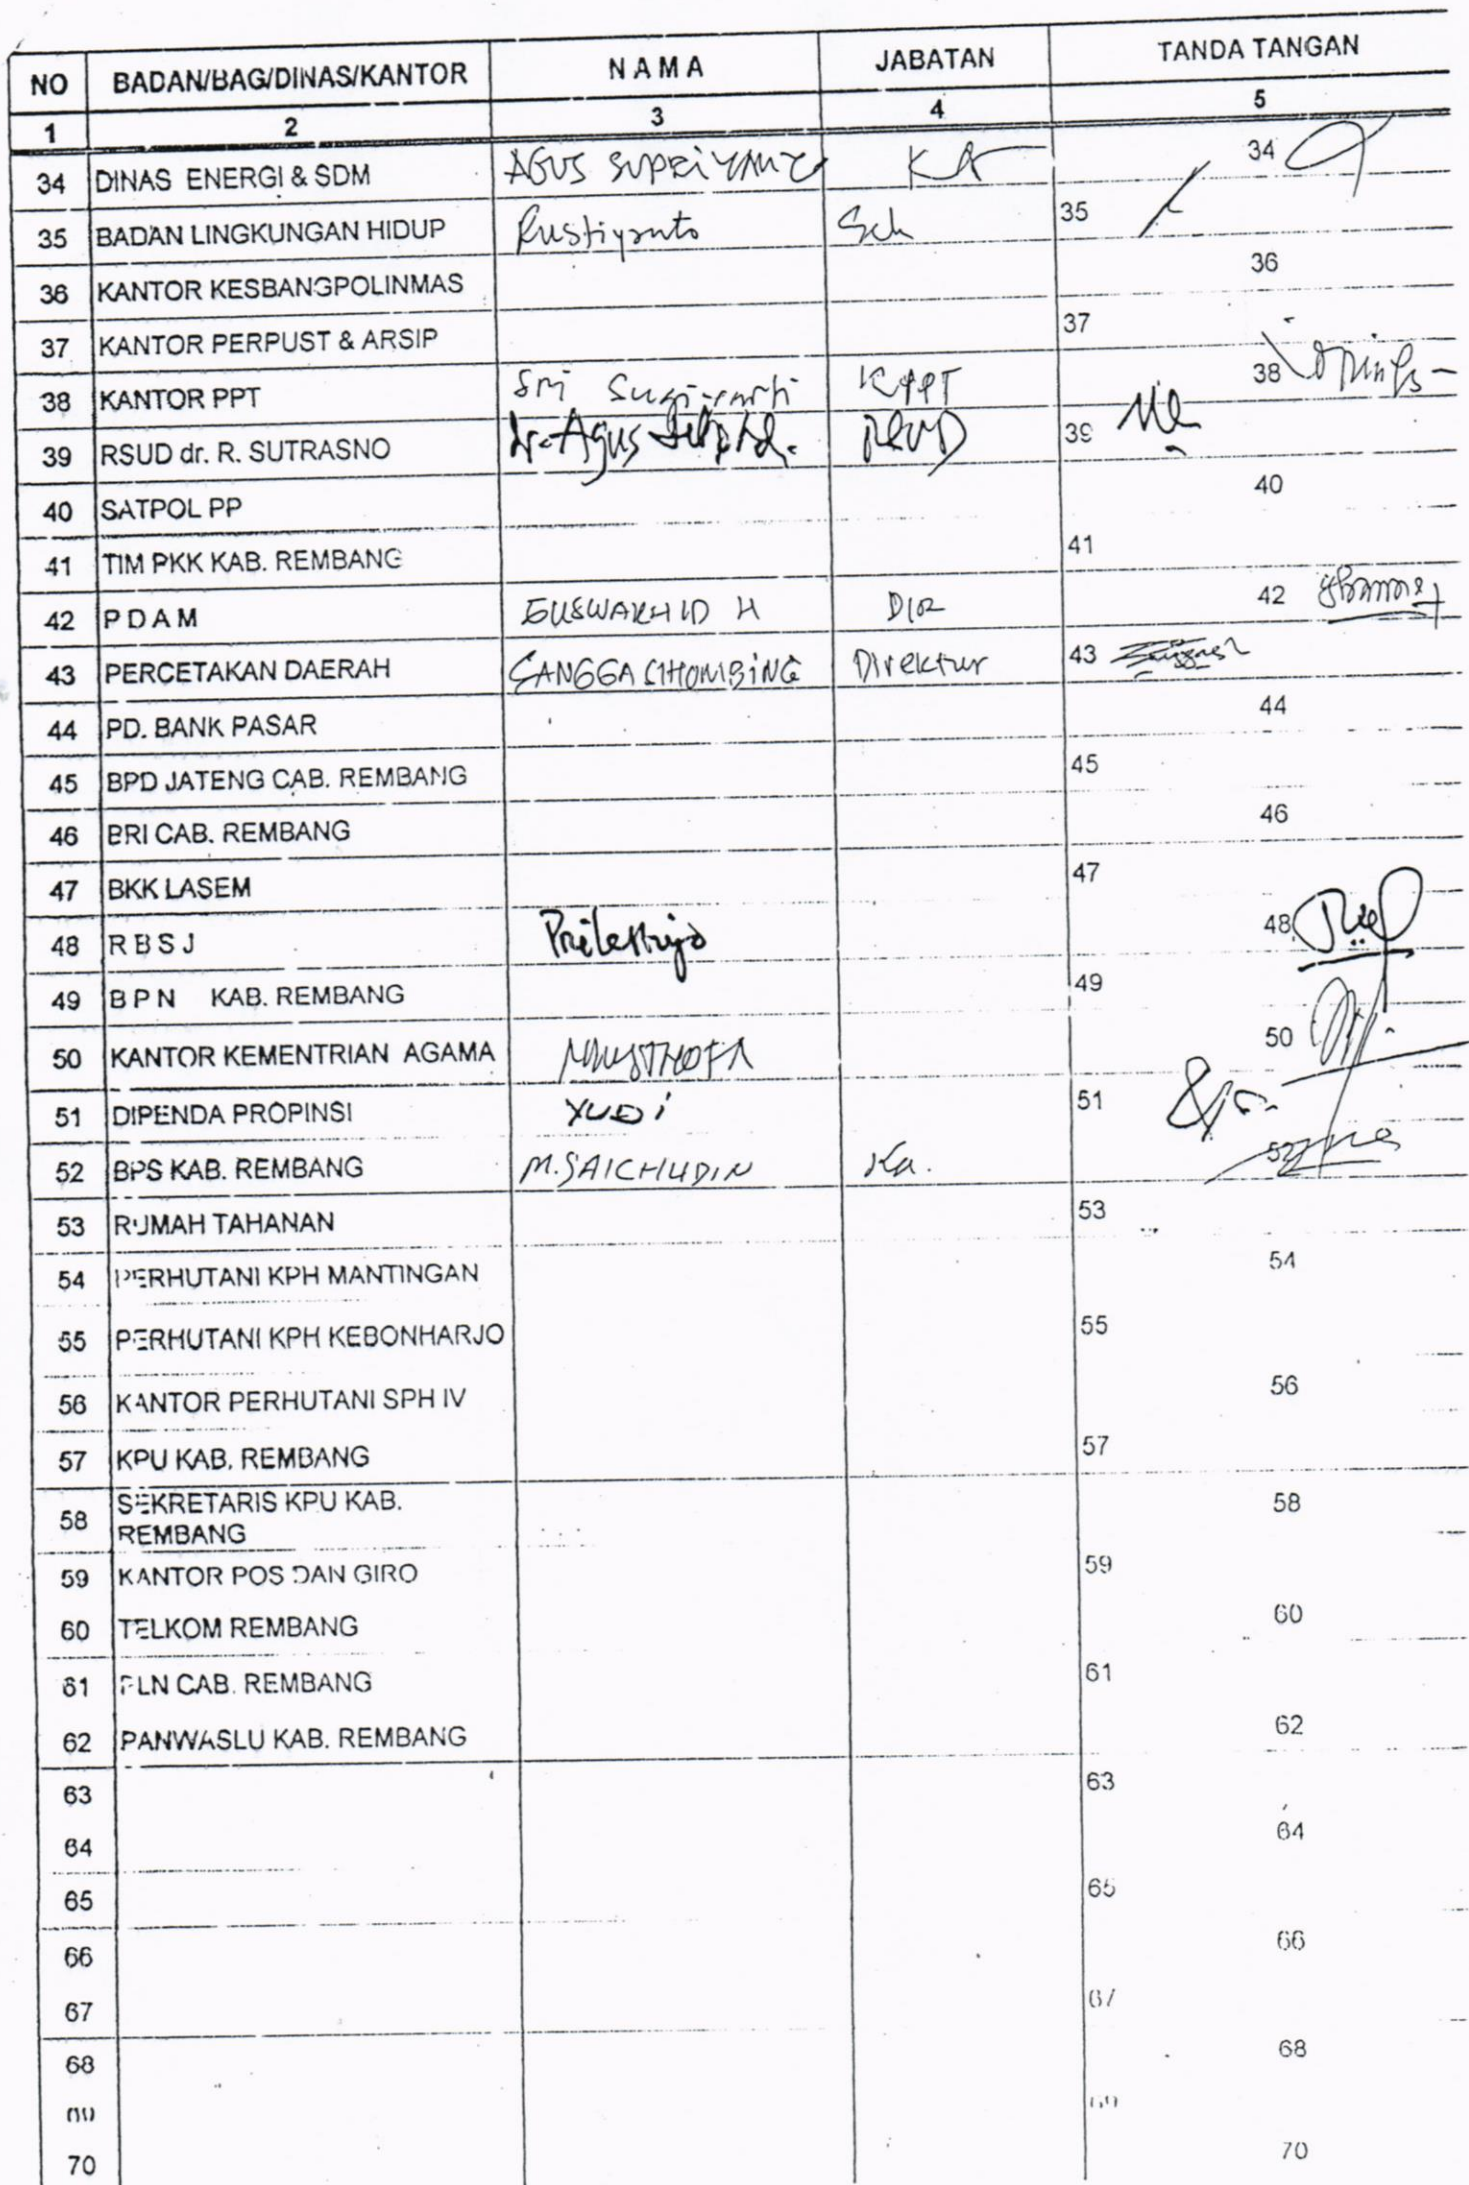 NO BADAN/BAG/DINAS/KANTOR N A M A JABATAN TANDA TANGAN
1 2 3 4 5
34 DINAS ENERGI & SDM AGUS SUPRIYANTO KA 34
35 BADAN LINGKUNGAN HIDUP Rustiyanto Sek 35
36 KANTOR KESBANGPOLINMAS 36
37 KANTOR PERPUST & ARSIP 37
38 KANTOR PPT Sri Sugiyarti KPPT 38
39 RSUD dr. R. SUTRASNO dr. Agus RSUD 39
40 SATPOL PP 40
41 TIM PKK KAB. REMBANG 41
42 P D A M H DIR 42
43 PERCETAKAN DAERAH SANGGA SIHOMBING Direktur 43
44 PD. BANK PASAR 44
45 BPD JATENG CAB. REMBANG 45
46 BRI CAB. REMBANG 46
47 BKK LASEM 47
48 R B S J 48
49 B P N KAB. REMBANG 49
50 KANTOR KEMENTRIAN AGAMA 50
51 DIPENDA PROPINSI YUDI 51
52 BPS KAB. REMBANG M. SAICHUDIN Ka. 52
53 RUMAH TAHANAN 53
54 PERHUTANI KPH MANTINGAN 54
55 PERHUTANI KPH KEBONHARJO 55
56 KANTOR PERHUTANI SPH IV 56
57 KPU KAB. REMBANG 57
58 SEKRETARIS KPU KAB. 58
REMBANG
59 KANTOR POS DAN GIRO 59
60 TELKOM REMBANG 60
61 PLN CAB. REMBANG 61
62 PANWASLU KAB. REMBANG 62
63 63
64 64
65 65
66 66
67 67
68 68
69 69
70 70